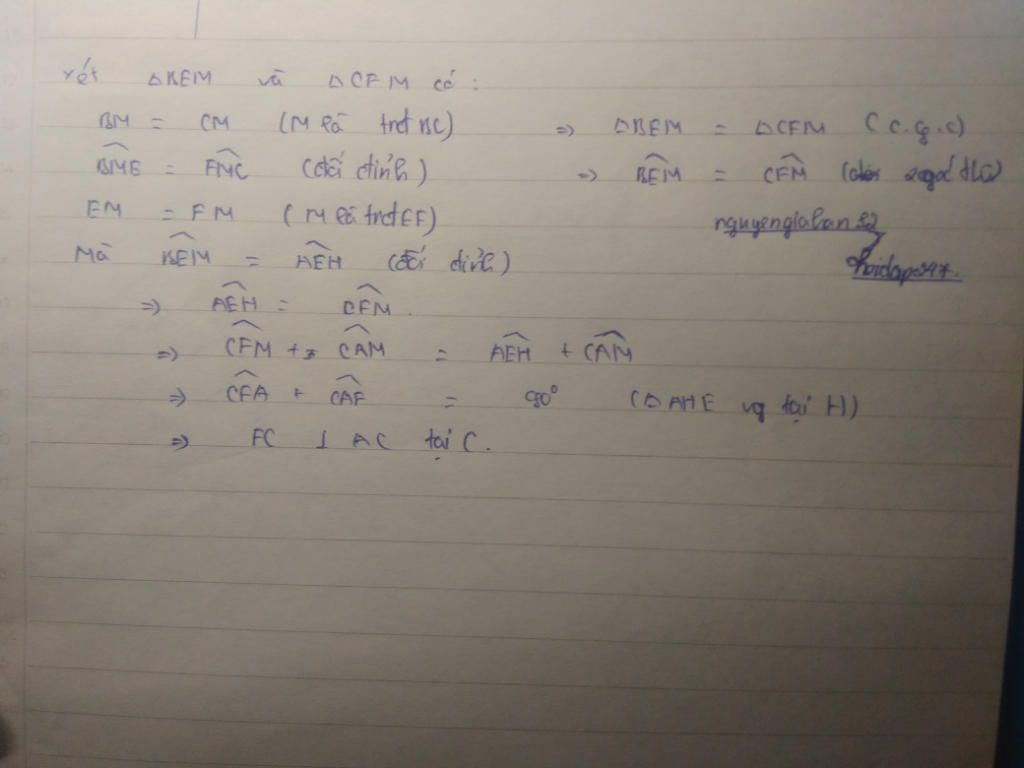 xét △BEM và △CFM có:
BM = CM (M là trđ BC) => △BEM = △CFM (c.g.c)
BME = FMC (đối đỉnh) => BEM = CFM (2 góc t/ứ)
EM = FM (M là trđ EF)
nguyengiaban
Mà BEM = AEH (đối đỉnh)
hoidap247.
=> AEH = CFM.
=> CFM + CAM = AEH + CAM
=> CFA + CAF = 90° (△AHE vg tại H)
=> FC ⊥ AC tại C.